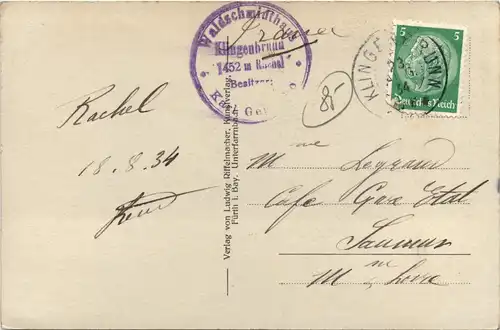 Waldschmidthaus
Klingenbrunn
1452 m Rachel
Besitzer:
France
KLINGENBRUNN
5 5
Deutsches Reich
8-
Rachel
18.8.34
Verlag von Ludwig Riffelmacher, Kunstverlag,
Fürth i. Bay. Unterfarrnbach
Mme Legrand
Café Gare Etat
Saumur
M ne Loire